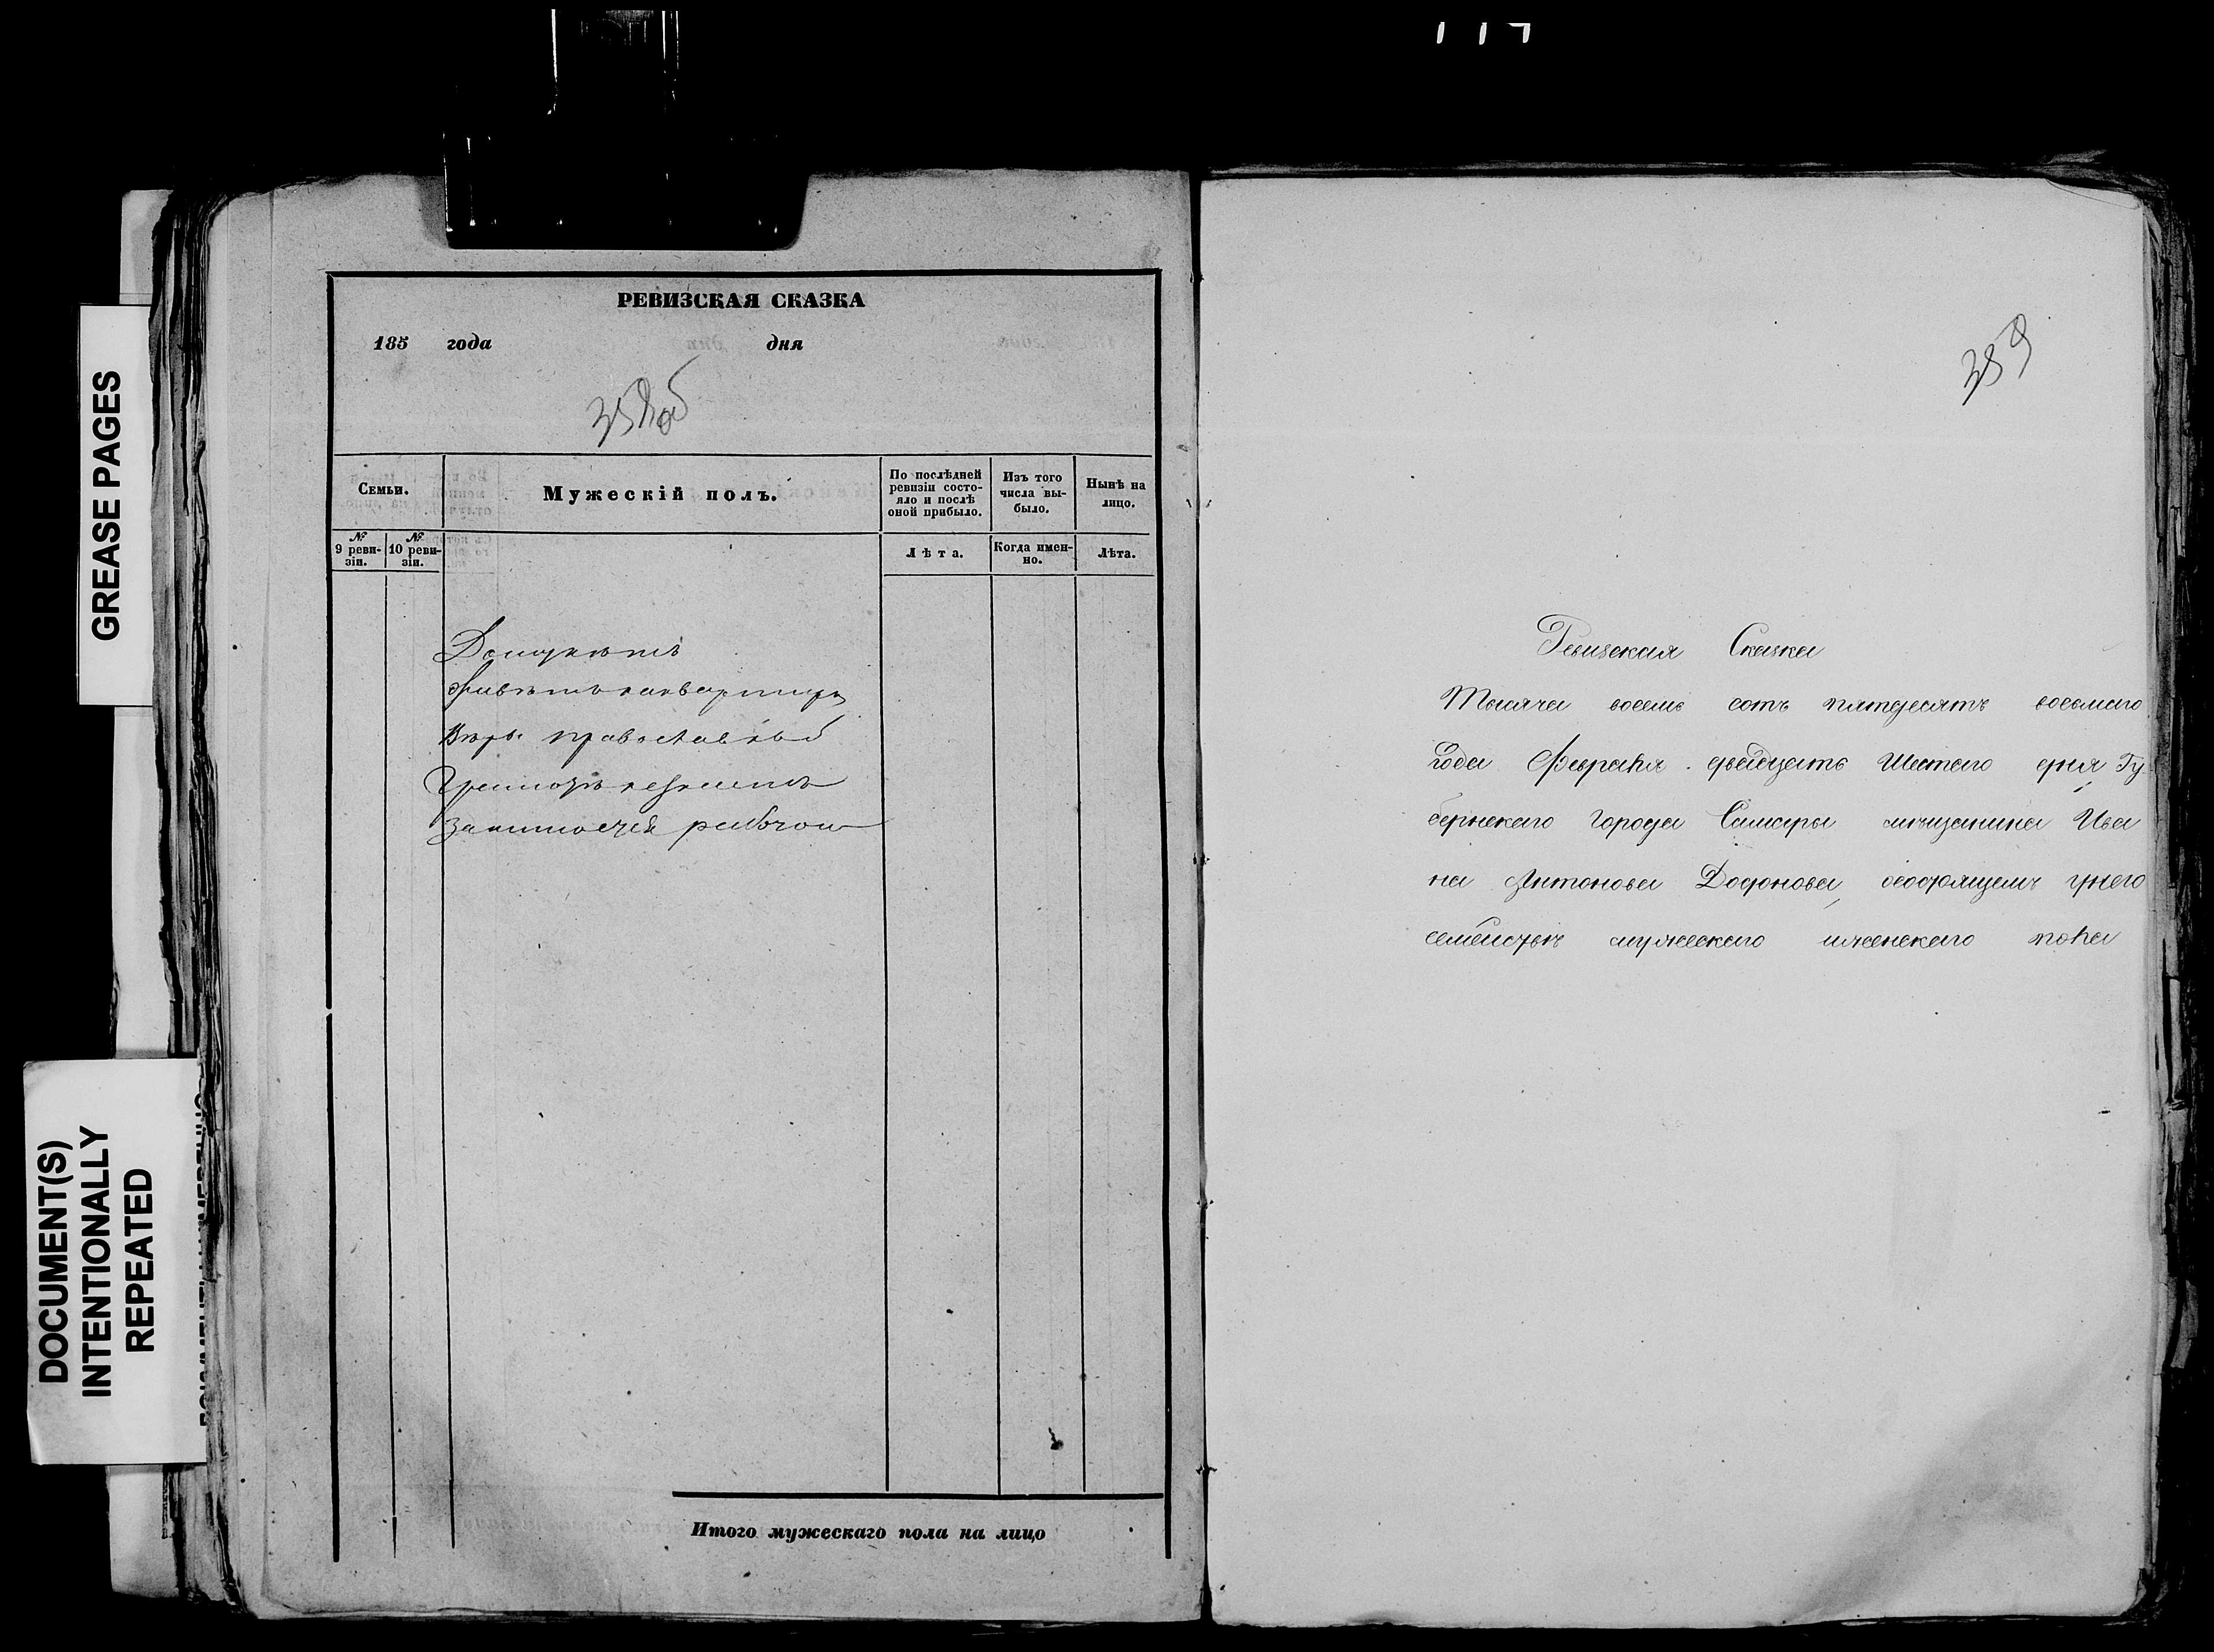 GREASE PAGES
DOCUMENT(S)
INTENTIONALLY
REPEATED
РЕВИЗСКАЯ СКАЗКА
185 года дня
358 об
Семьи.
Мужескій полъ.
По послѣдней ревизіи состо-
яло и послѣ
оной прибыло.
Изъ того
числа вы-
было.
Нынѣ на
лицо.
№ 9 реви-
зіи.
№ 10 реви-
зіи.
Лѣта.
Когда имен-
но.
Лѣта.
Домунѣтъ
Живѣтъ на квартиры
Вѣры православной
Грамоты незнаитъ
Занимаеця работою
Итого мужескаго пола на лицо
359
Ревизская Сказка
Тысяча восемь сотъ пятдесятъ восьмаго
года Февраля двадцать Шестаго дня Гу
бернскаго города Самары мѣщанина Ива
на Антонова Додонова, осостоящемъ унего
семѣйствѣ мужескаго иженскаго пола